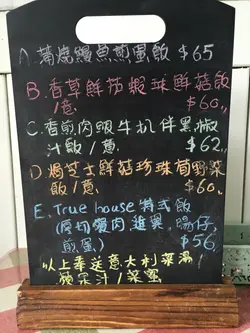 A. 蒲燒鰻魚煎蛋飯 $65
B. 香草鮮茄蝦球鮮菇飯
/意 $60
C. 香煎肉眼牛扒伴黑椒
汁飯/意 $62
D. 焗芝士鮮菇珍珠筍野菜
飯/意 $60
E. True house 特式飯
(厚切餐肉進異腸仔,
煎蛋) $56
以上奉送意大利菜湯
/菜蜜